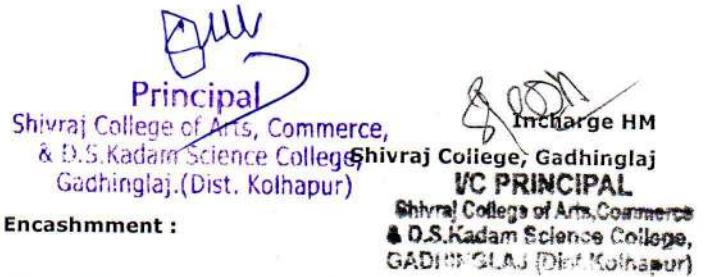 Principal
Shivraj College of Arts, Commerce,
& D.S.Kadam Science College,
Gadhinglaj.(Dist. Kolhapur)
Incharge HM
Shivraj College, Gadhinglaj
I/C PRINCIPAL
Shivraj College of Arts,Commerce
& D.S.Kadam Science College,
GADHINGLAJ (Dist.Kolhapur)
Encashmment :